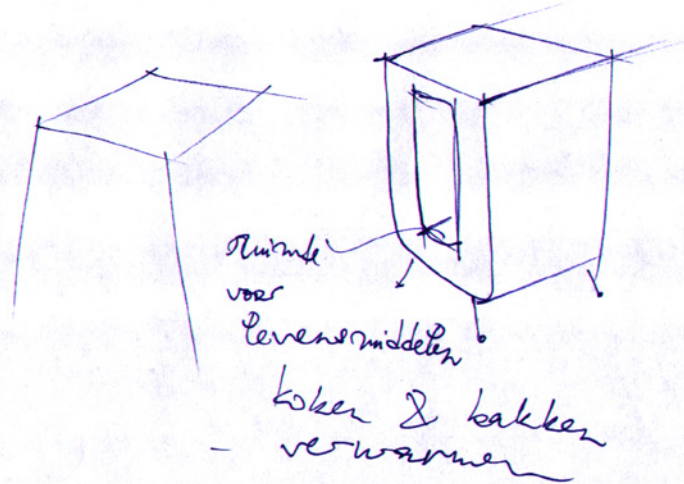 ruimte
voor
levensmiddelen
koken & bakken
- verwarmen